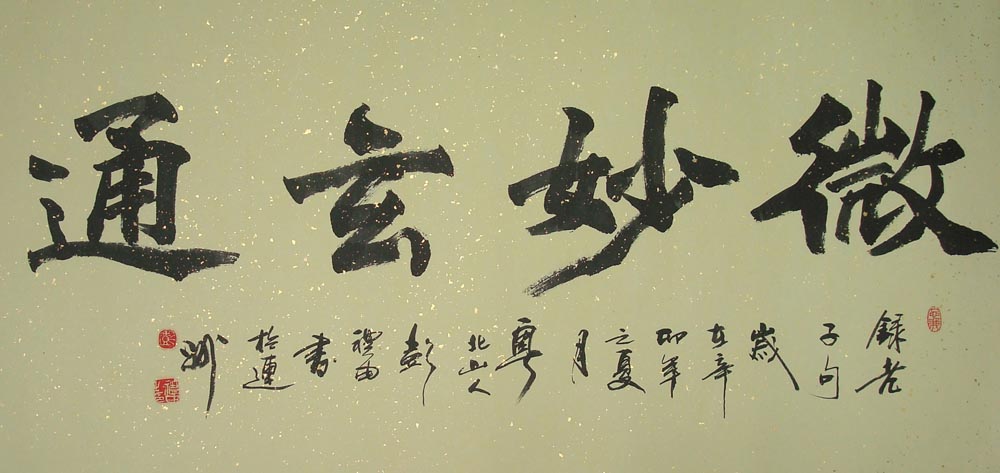 微妙玄通
録老
子句
歲
在辛
卯年
之夏
月
粵
北山人
彭
禮南
書
於連
洲